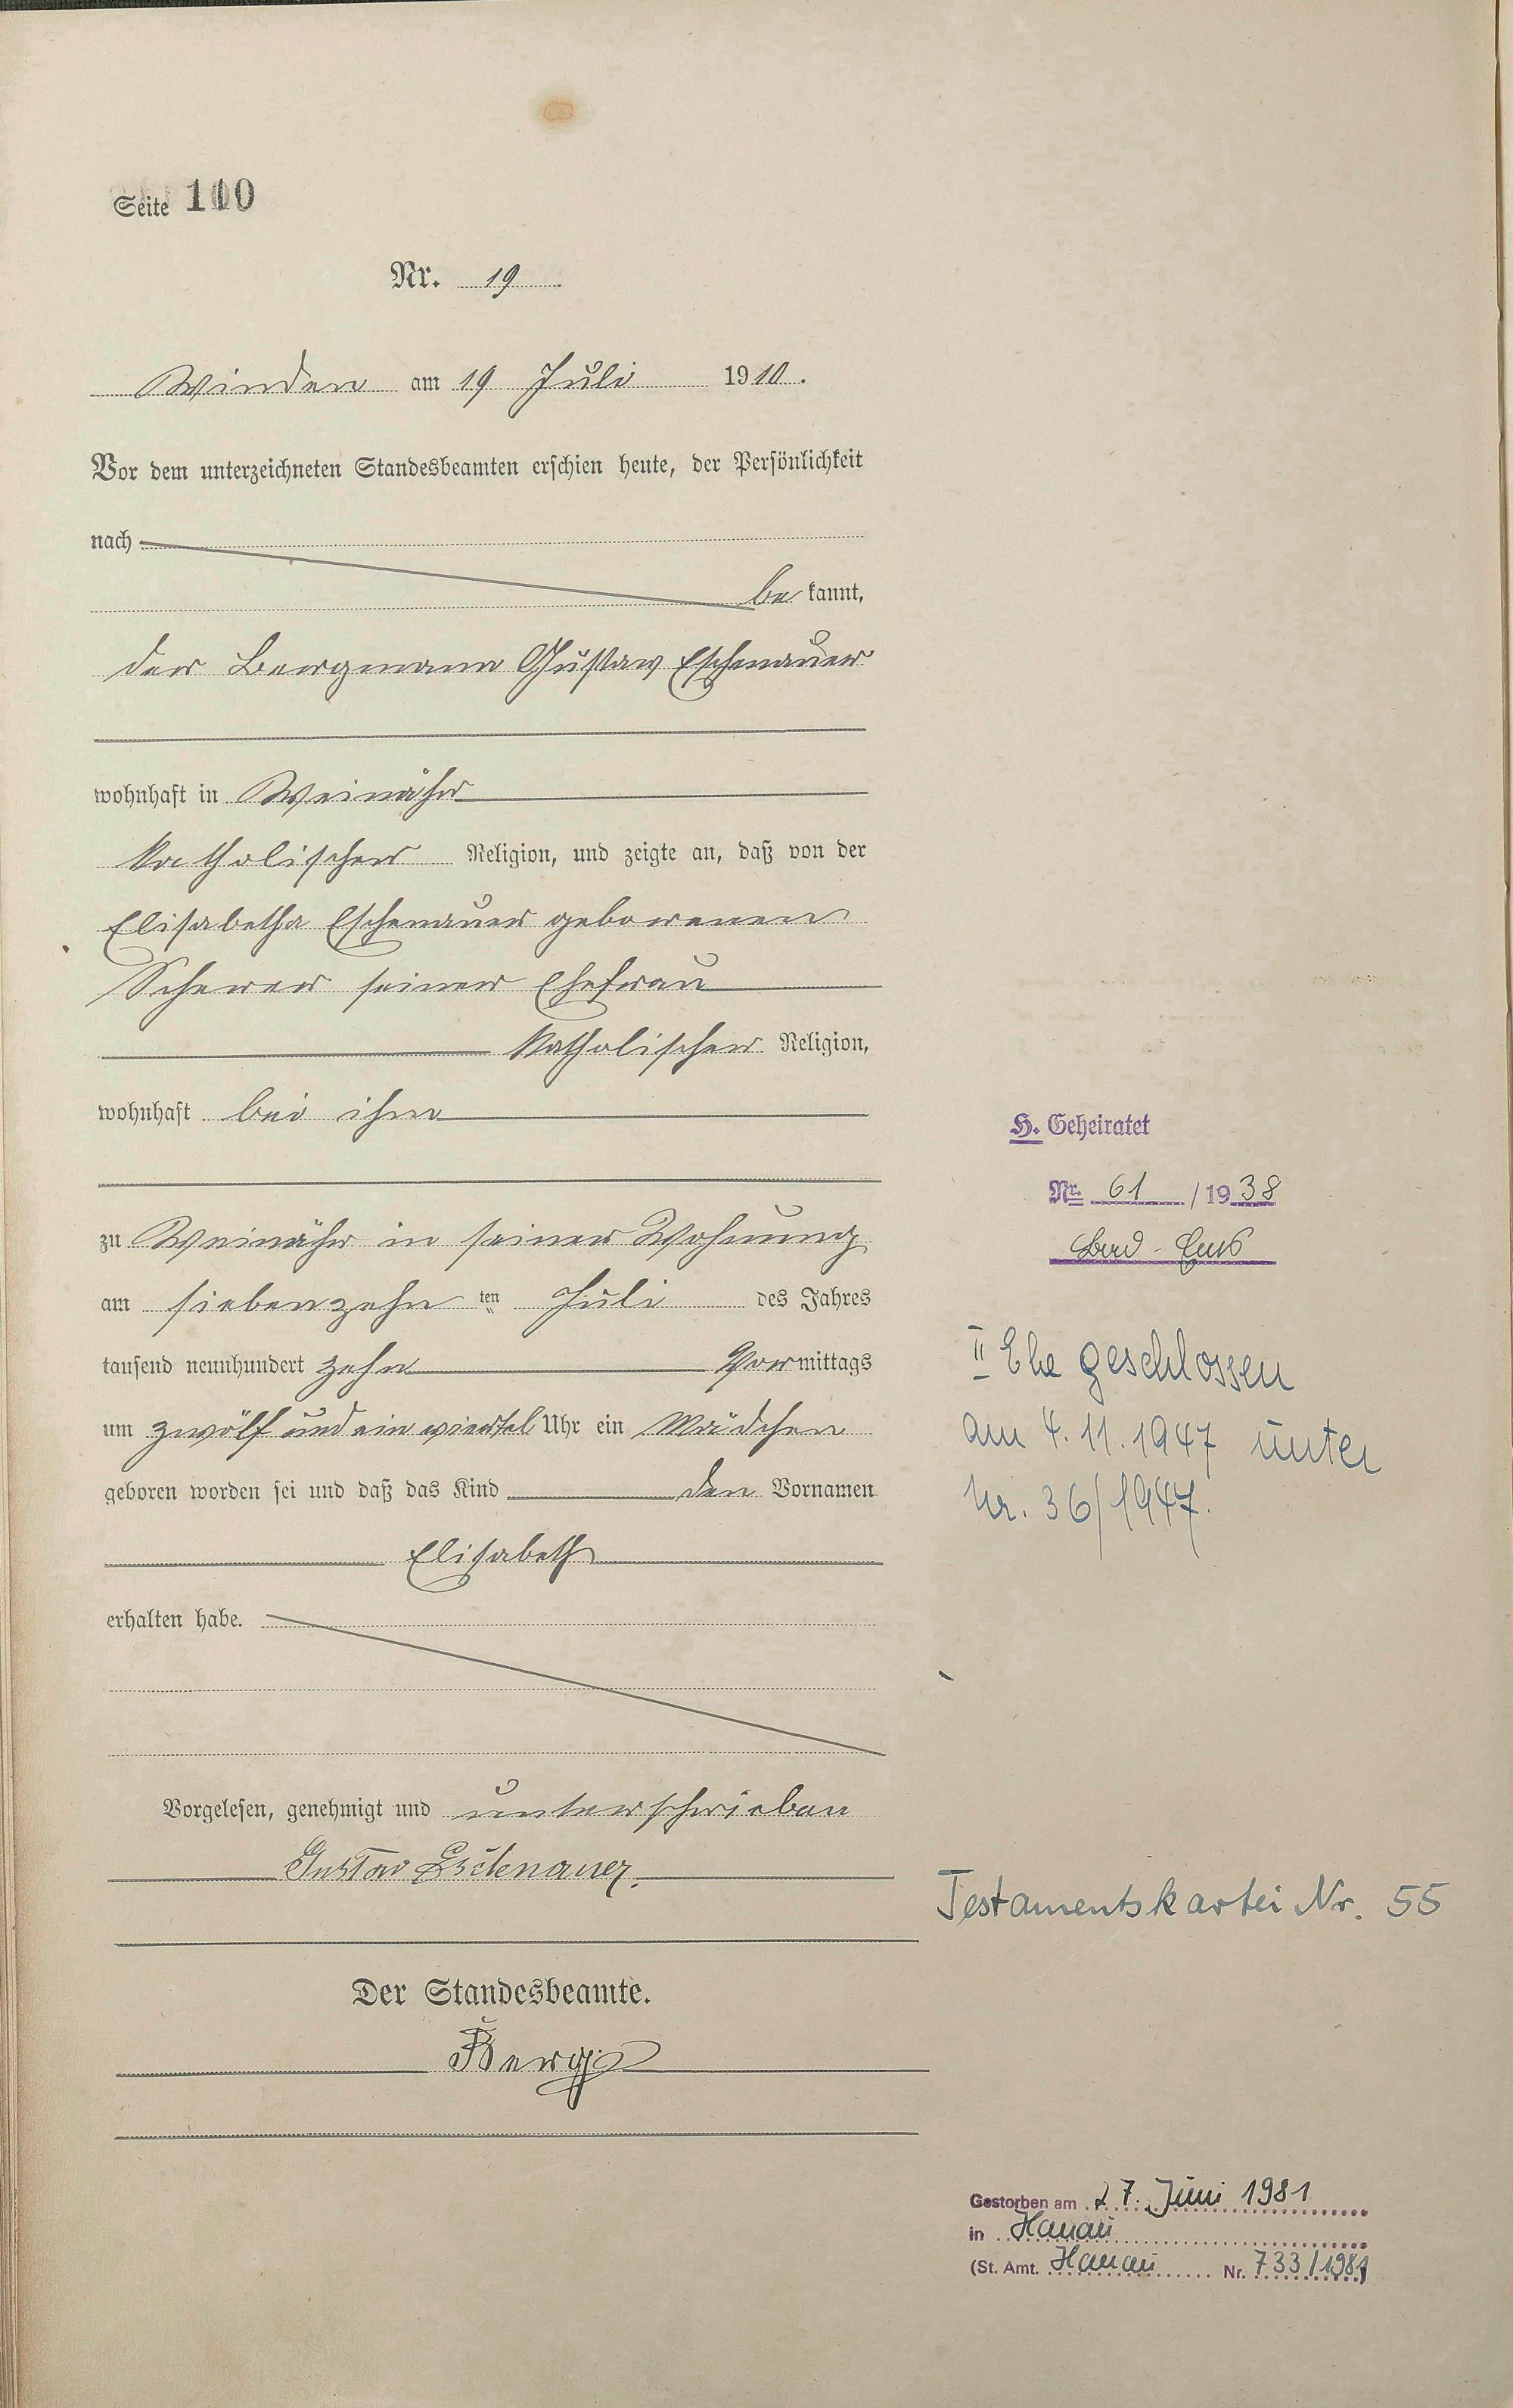 Seite 110
Nr. 19
Winden am 19 Juli 1910.
Vor dem unterzeichneten Standesbeamten erschien heute, der Persönlichkeit
nach
be kannt,
der Bergmann Gustav Eschenauer
wohnhaft in Weinähr
katholischer Religion, und zeigte an, daß von der
Elisabetha Eschenauer geborenen
Scherer seiner Ehefrau
katholischer Religion,
wohnhaft bei ihm
zu Weinähr in seiner Wohnung
am siebenzehn ten Juli des Jahres
tausend neunhundert zehn Vormittags
um zwölf und ein viertel Uhr ein Mädchen
geboren worden sei und daß das Kind den Vornamen
Elisabeth
erhalten habe.
Vorgelesen, genehmigt und unterschrieben
Gustav Eschenauer.
Der Standesbeamte.
Berg
H. Geheiratet
Nr. 61 / 1938
Bad-Ems
II Ehe geschlossen
am 4.11.1947 unter
Nr. 36/1947.
Testamentskartei Nr. 55
Gestorben am 27. Juni 1981
in Hanau
(St. Amt. Hanau Nr. 733/1981)